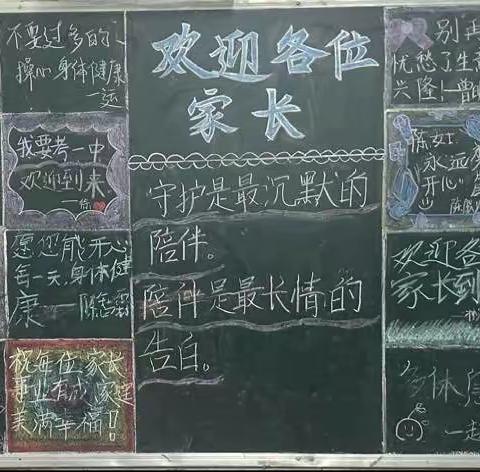 不要过多的
操心身体健康
我要考一中
欢迎到来
愿您能开心
每一天,身体健
康——陈志
祝每位家长
事业有成 家庭
美满幸福!!
欢迎各位
家长
守护是最沉默的
陪伴。
陪伴是最长情的
告白。
别再
忧愁了生意
兴隆!
陈女士
永远
开心
欢迎各
家长到
多休息
一起